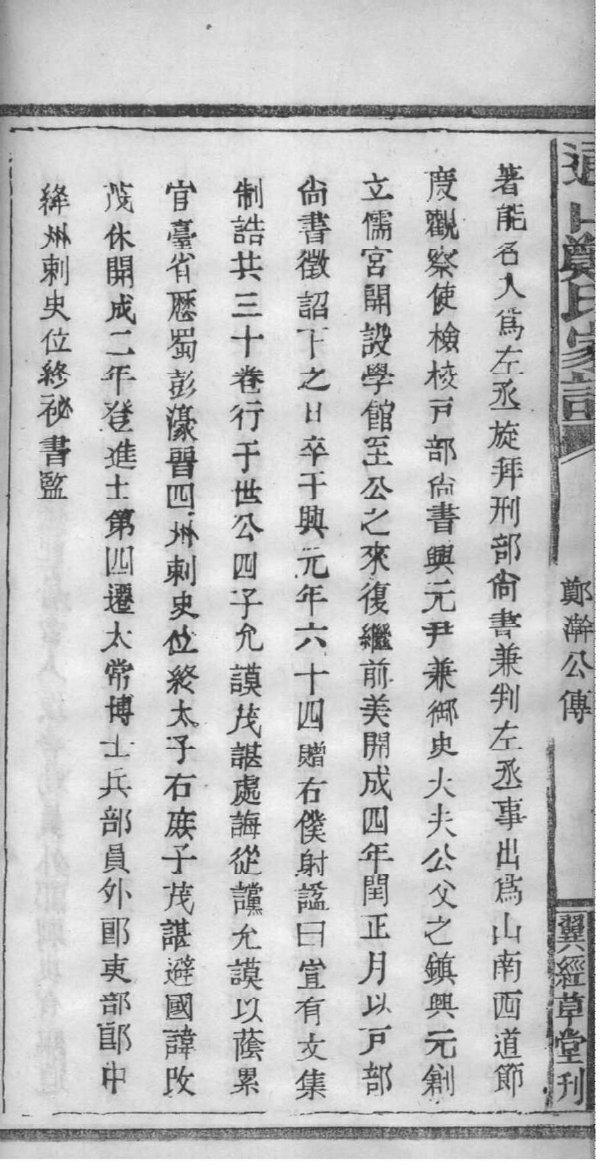 鄭氏家譜
鄭澣公傳
翼經草堂刊
著能名入爲左丞旋拜刑部尙書兼判左丞事出爲山南西道節
度觀察使檢校戸部尙書興元尹兼御史大夫公父之鎭興元創
立儒宮開設學館至公之來復繼前美開成四年閏正月以戸部
尙書徵詔下之日卒于興元年六十四贈右僕射諡曰宣有文集
制誥共三十卷行于世公四子允謨茂諶處誨從讜允謨以蔭累
官臺省歷蜀彭濠晉四州刺史位終太子右庶子茂諶避國諱改
茂休開成二年登進士第四遷太常博士兵部員外郎吏部郎中
絳州刺史位終祕書監